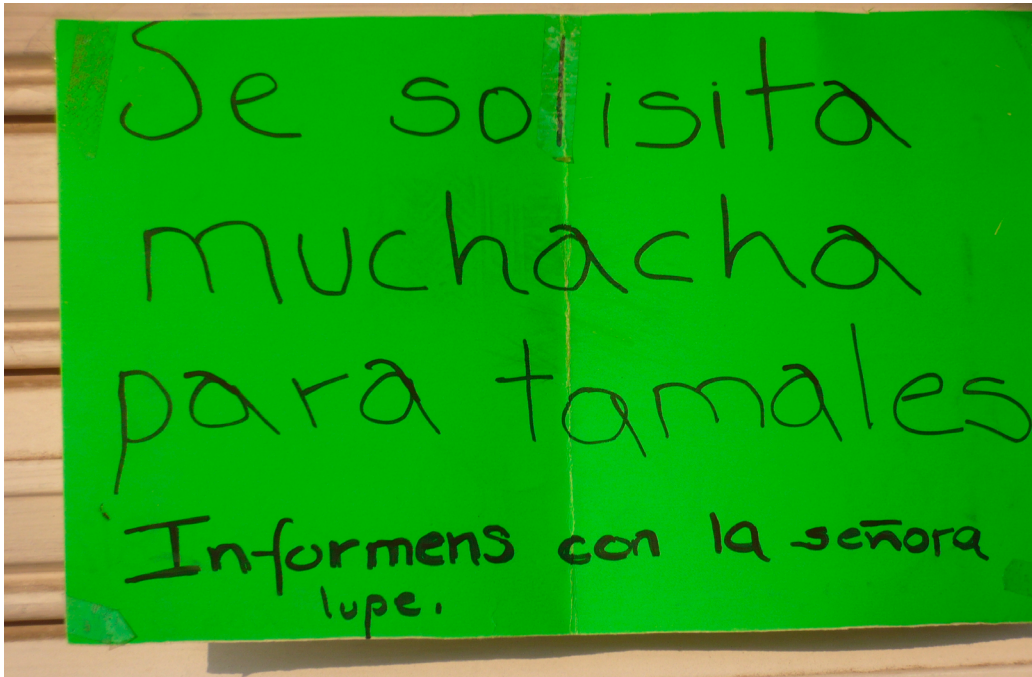 Se solisita
muchacha
para tamales
Informens con la señora
lupe.